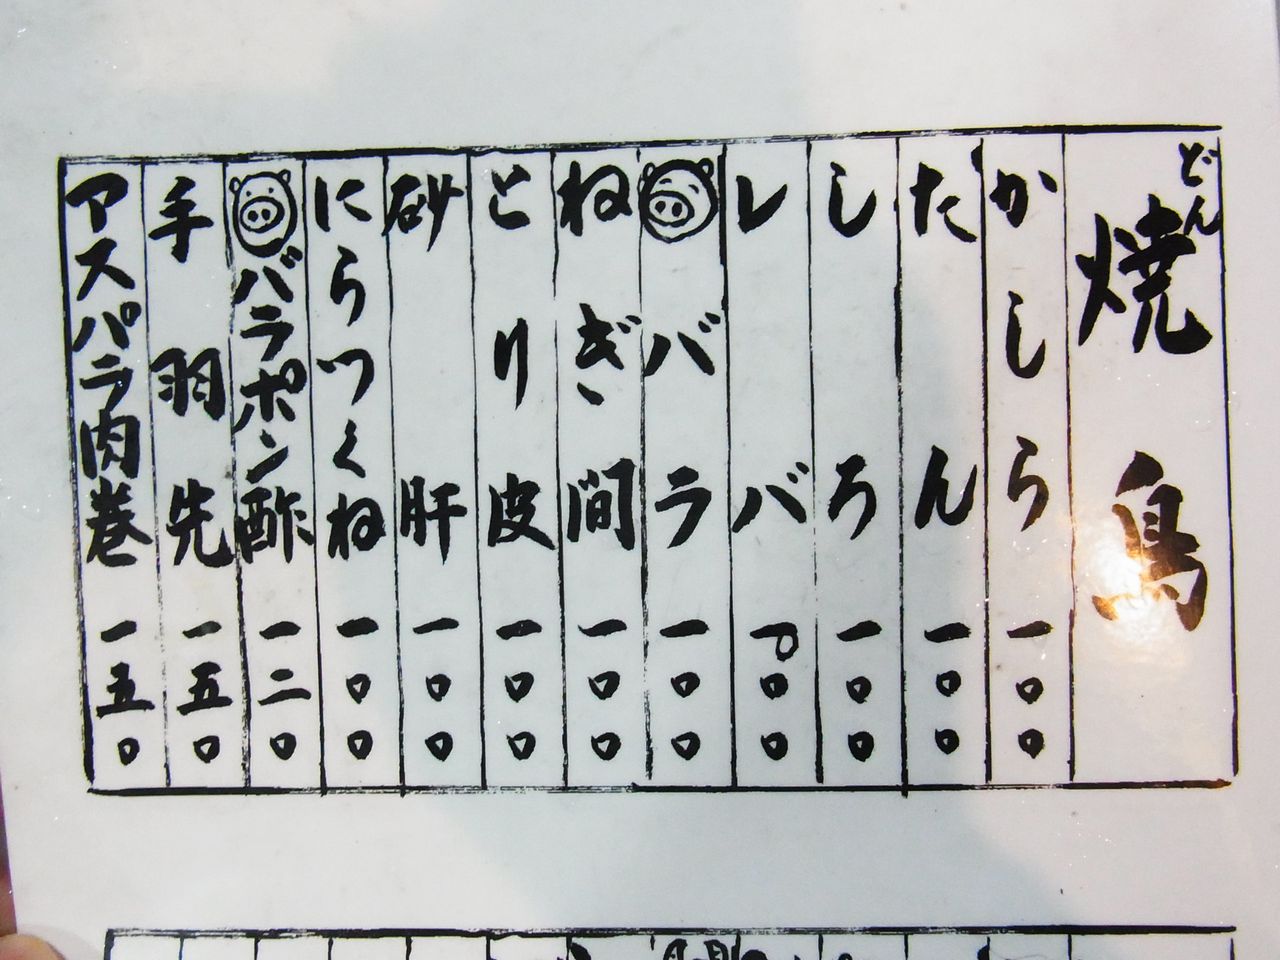 どん
焼鳥
かしら 一〇〇
たん 一〇〇
しろ 一〇〇
レバ 一〇〇
バラ 一〇〇
ねぎ間 一〇〇
とり皮 一〇〇
砂肝 一〇〇
にらつくね 一〇〇
バラポン酢 一二〇
手羽先 一五〇
アスパラ肉巻 一五〇